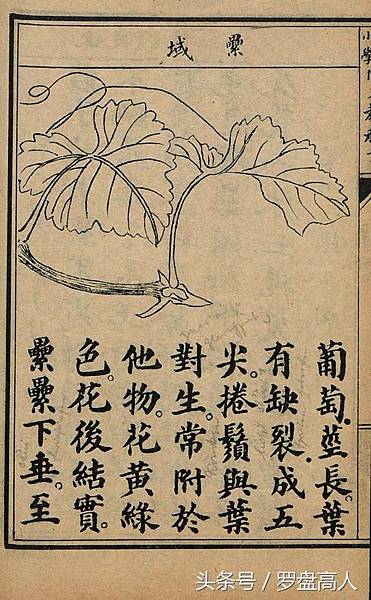 纍域
葡萄。莖長。葉
有缺裂。成五
尖。捲鬚與葉
對生。常附於
他物。花黃綠
色。花後結實。
纍纍下垂。至
头条号 / 罗盘高人